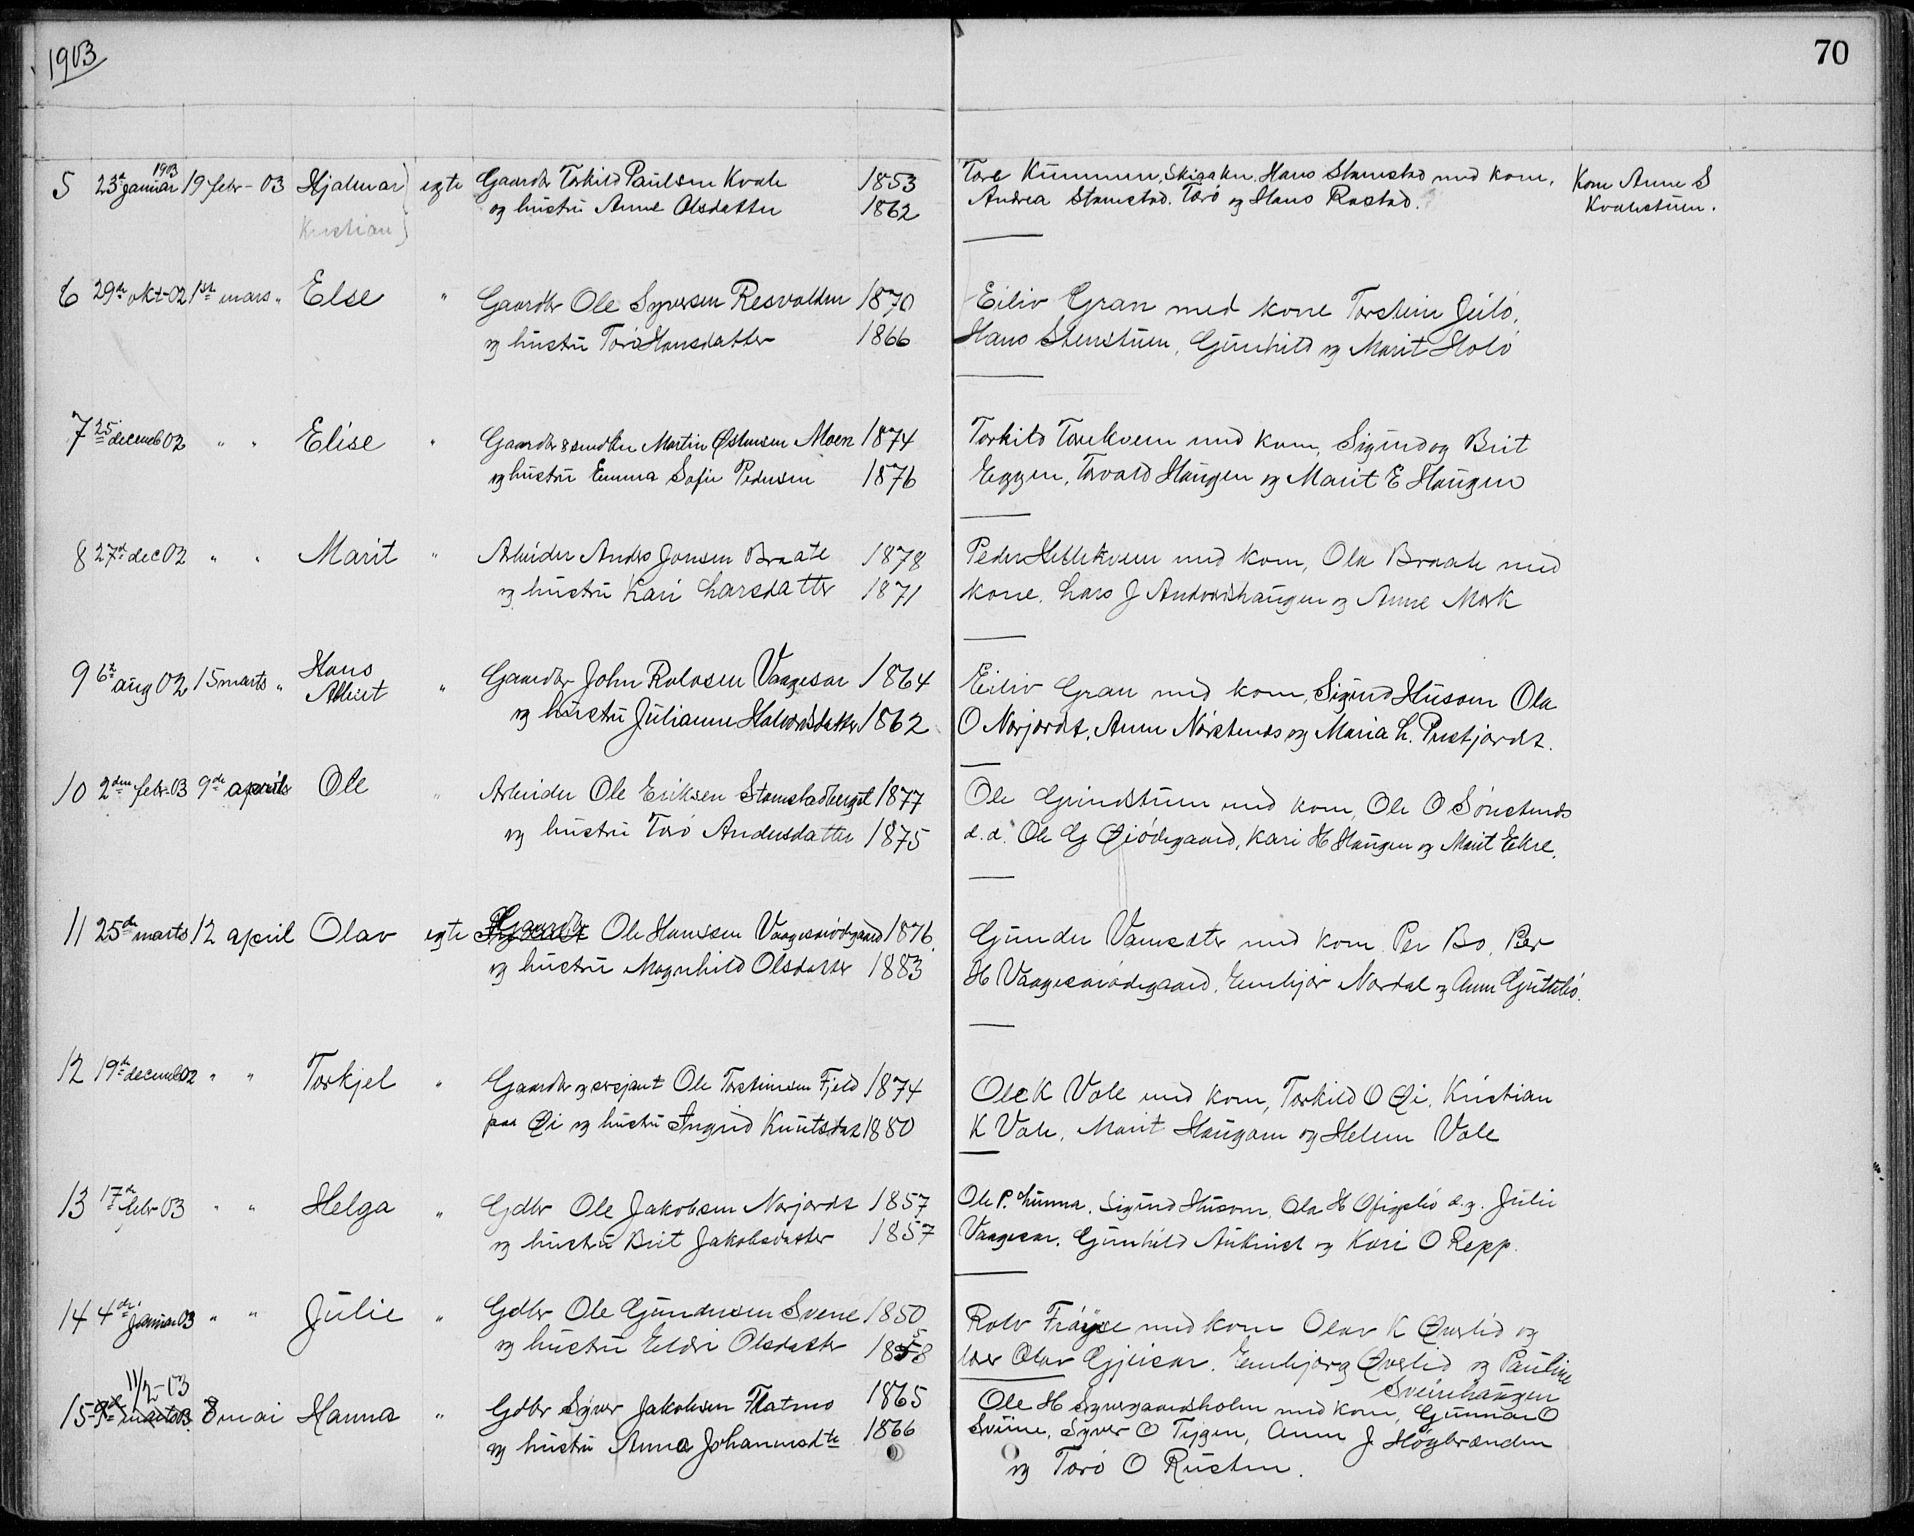 1903
70
5 23d januar 1903 19 febr - 03 Hjalmar egte Gaardbr Torkild Paulsen Kvale 1853
og hustru Anne Olsdatter 1862
Kristian
Hans Stamstad med kone, Kone Anne S
Andrea Stamstad. Torö og Hans Rastad.
6 29de okt-02 1ste mars " Else " Gaardbr Ole Syversen Resvolden 1870
og hustru Torö Hansdatter 1866
Eiliv Gran med kone Torstein Jeilö,
Hans Stenstuen, Gunhild og Marit Holö
7 25 decemb 02 " " Elise " Martin Østensen Moen 1874
og hustru Emma Sofie Pedersen 1876
Torkild med kone, Sigurd og Brit
Eggen, Torvald Haugen og Marit E Haugen
8 27d dec 02 " " Marit " Arbeider Andrs Jonsen Braate 1878
og hustru Kari Larsdatter 1871
Peder med kone, Ola Braate med
kone, Lars J og Anne Mork
9 6te aug 02 15 marts " Hans
Albert " Gaardbr John Rolvsen Vaagesar 1864
og hustru Julianne Halvorsdatter 1862
Eiliv Gran med kone, Sigurd Husom Ola
O Norjordt, Anne og Maria L. Prestjordt.
10 2den febr-03 9de april Ole " Arbeider Ole Eriksen Stamstadberget 1877
og hustru Torö Andersdatter 1875
Ole Grindstuen med kone, Ole O
d.d. Ole G Øiödegaard, Kari H Haugen og Marit Ekre.
11 25de marts 12 april Olav egte Gaardbr Ole Hanssen Vaagesarödegaard 1876
og hustru Magnhild Olsdatter 1883
Gunder med kone. Per Bo, Per
H Vaagesarödegaard. Nordal og Anne
12 19de decemb 02 " " Torkjel " Gaardbr og sersjant Ole Torstinsen Fjeld 1874
paa Øi og hustru Ingrid Knutsdat 1880
Ole K Vole med kone, Torkild O Øi, Kristian
K Vole, Marit Haugom og Helene Vole
13 17de febr 03 " " Helga " Gdbr Ole Jakobsen Norjordt 1857
og hustru Brit Jakobsdatter 1857
Ole P. Lunna, Sigurd Husom, Ola H d.y. Julie
Vaagesar, Gunhild og Kari O Repp.
14 4de januar 03 " " Julie " Gdbr Ole Gundersen Svene 1850
og hustru Eldri Olsdatter 1858
Rolv med kone Olav K Øverlid og
Olav Øverlid og Pauline
Sveinhaugen
11/2-03
15 8 mai Hanna " Gdbr Syver Jakobsen Flatmo 1865
og hustru Anna Johannesdtr 1866
Ole H Syvergaardsholm med kone, Gunnar O
Sveine, Syver O Tygen, Anne J Høgbrænden
og Torö O Rusten.